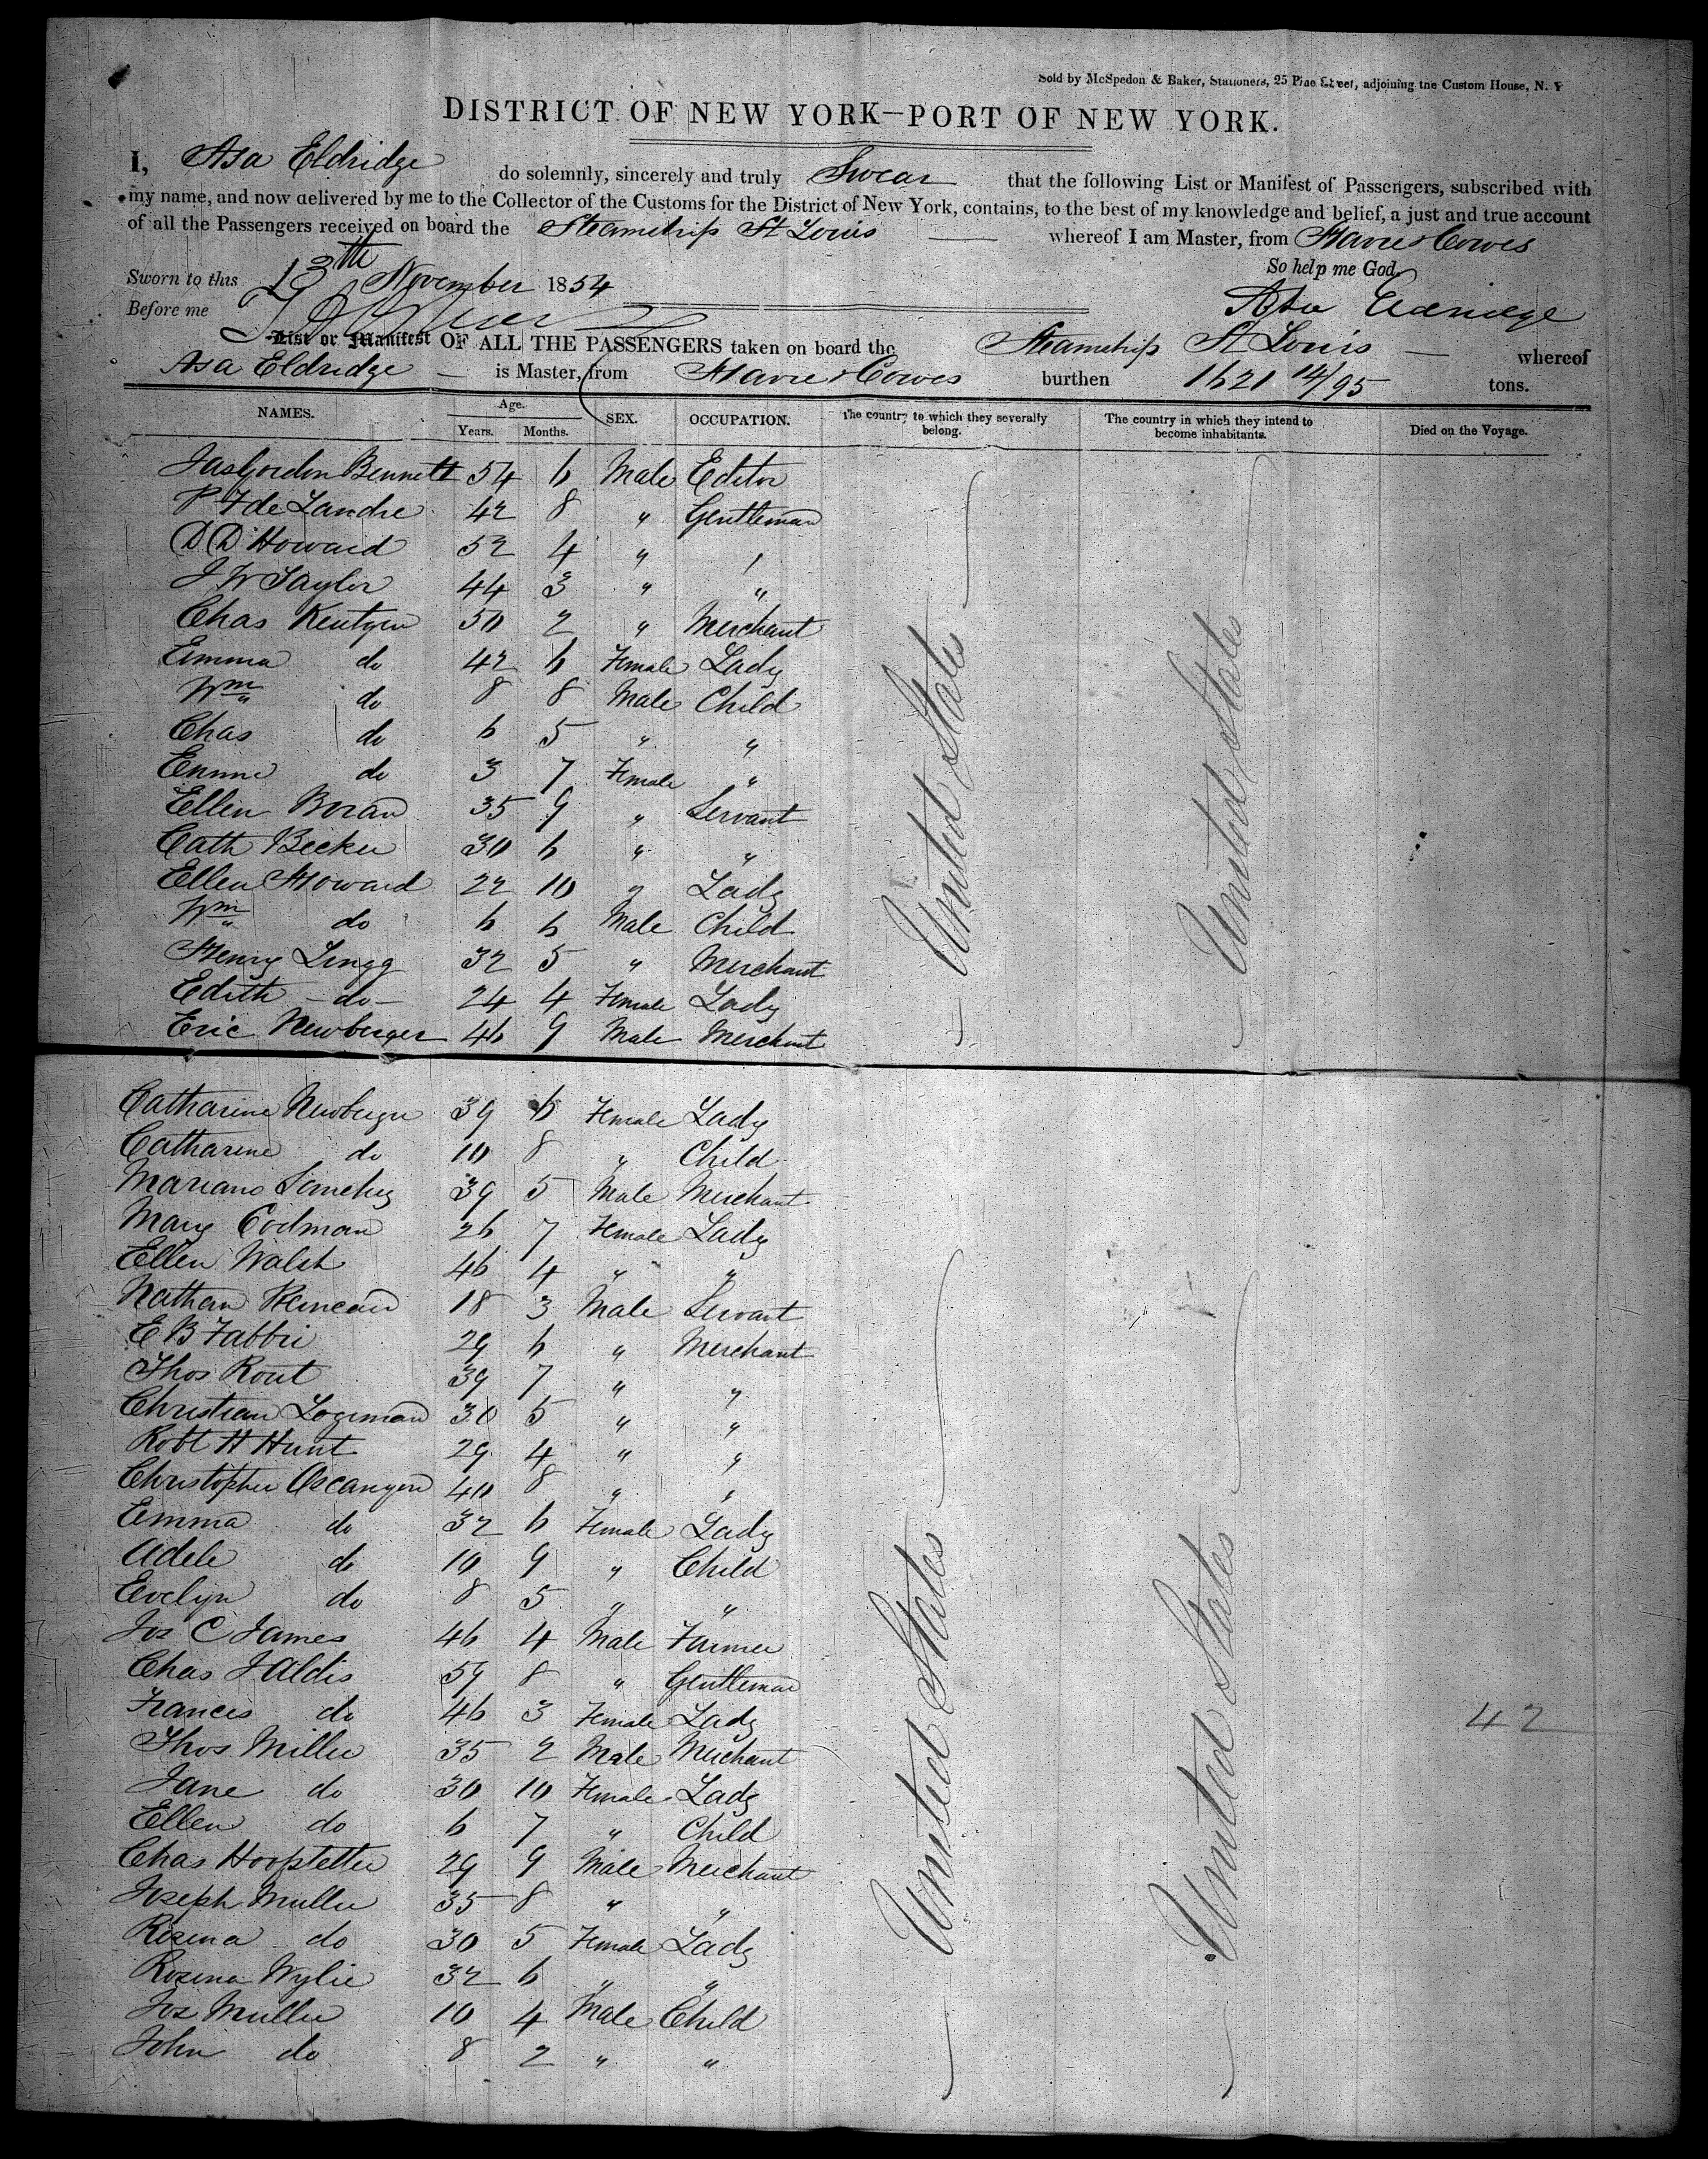 Sold by McSpedon & Baker, Stationers, 25 Pine Street, adjoining the Custom House, N. Y
DISTRICT OF NEW YORK—PORT OF NEW YORK.
I, Asa Eldridge do solemnly, sincerely and truly Swear that the following List or Manifest of Passengers, subscribed with
my name, and now delivered by me to the Collector of the Customs for the District of New York, contains, to the best of my knowledge and belief, a just and true account
of all the Passengers received on board the Steamship St Louis whereof I am Master, from Havre & Cowes
So help me God.
Sworn to this 13th November 1854
Asa Eldridge
Before me
List or Manifest OF ALL THE PASSENGERS taken on board the Steamship St Louis whereof
Asa Eldridge is Master, from Havre & Cowes burthen 1621 14/95 tons.
NAMES. Age. Years. Months. SEX. OCCUPATION. The country to which they severally belong. The country in which they intend to become inhabitants. Died on the Voyage.
Jas Gordon Bennett 54 6 Male Editor
P F de Landre 42 8 " Gentleman
D D Howard 52 4 " "
J W Taylor 44 3 " "
Chas Keutgen 50 2 " Merchant
Emma do 42 6 Female Lady
Wm do 8 8 Male Child
Chas do 6 5 " "
Emma do 3 7 Female "
Ellen Boran 35 9 " Servant
Cath Becker 30 6 " "
Ellen Howard 22 10 " Lady
Wm do 6 6 Male Child
Henry Lingg 32 5 " Merchant
Edith do 24 4 Female Lady
Eric Newberger 46 9 Male Merchant
United States United States
Catharine Newberger 39 6 Female Lady
Catharine do 10 8 " Child
Mariano Sanchez 39 5 Male Merchant
Mary Codman 26 7 Female Lady
Ellen Walsh 46 4 " "
Nathan 18 3 Male Servant
E B Fabbri 29 6 " Merchant
Thos Rout 39 7 " "
Christian Logeman 30 5 " "
Robt H Hunt 29 4 " "
Christopher Oscanyan 40 8 " "
Emma do 32 6 Female Lady
Adele do 10 9 " Child
Evelyn do 8 5 " "
Jos C James 46 4 Male Farmer
Chas J Aldis 59 8 " Gentleman
Frances do 46 3 Female Lady
Thos Miller 35 2 Male Merchant
Jane do 30 10 Female Lady
Ellen do 6 7 " Child
Chas Hoofstetter 29 9 Male Merchant
Joseph Muller 35 8 " "
Rosina do 30 5 Female Lady
Rosina Wylie 32 6 " "
Jos Muller 10 4 Male Child
John do 8 2 " "
United States United States
42